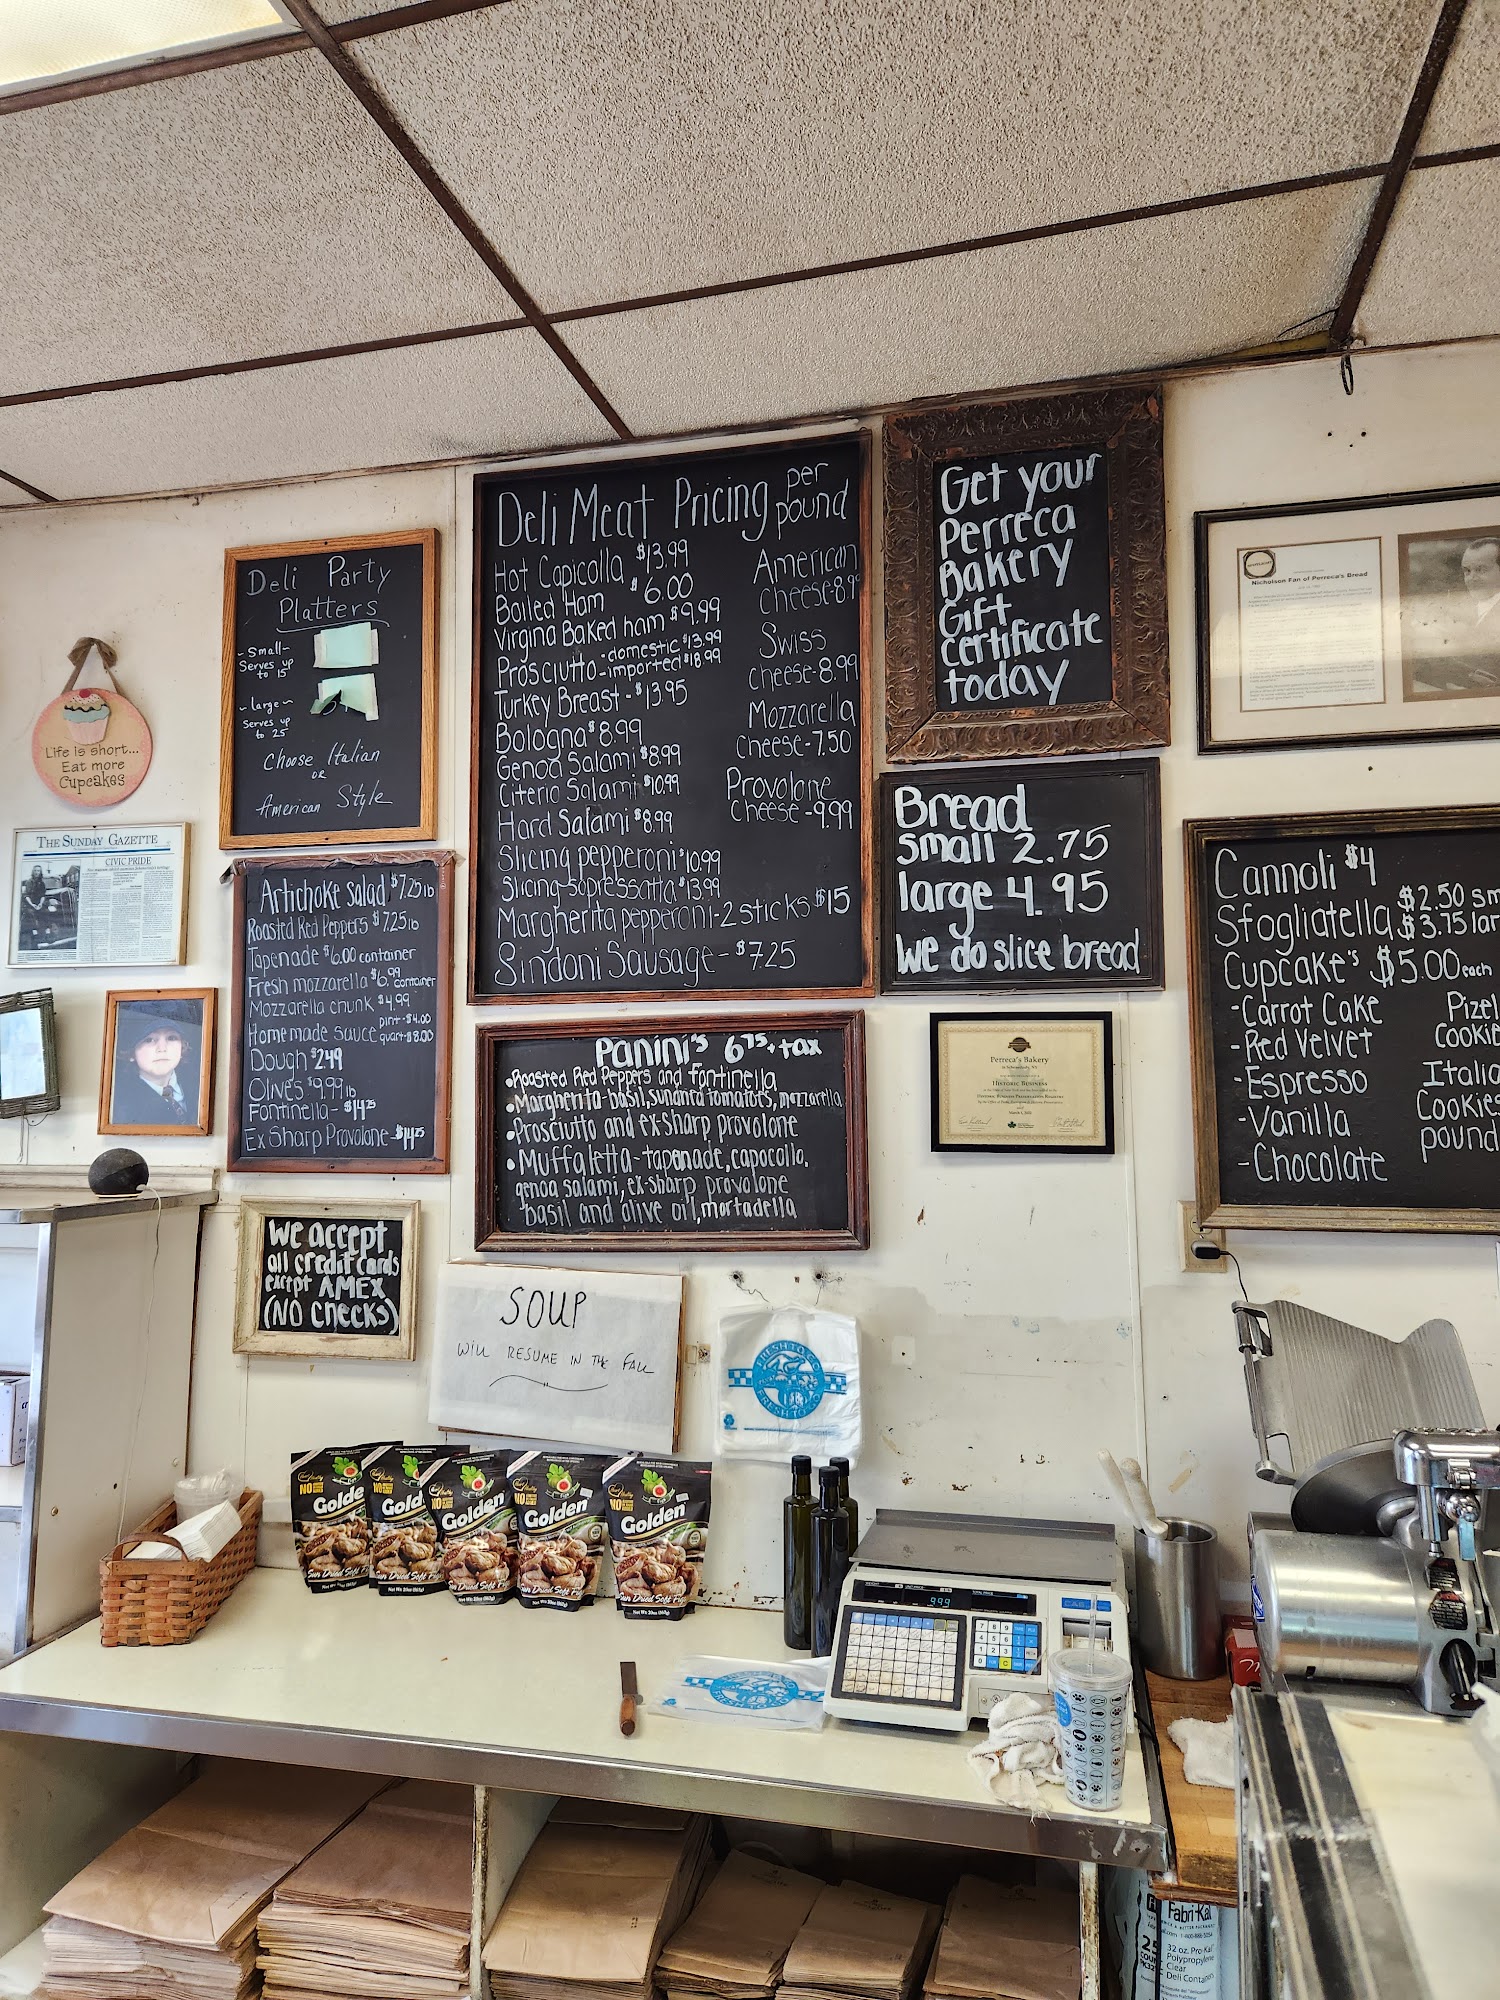 Deli Party
Platters
- Small -
Serves up
to 15
- large -
Serves up
to 25
Choose Italian
or
American Style
Life is short...
Eat more
Cupcakes
THE SUNDAY GAZETTE
CIVIC PRIDE
Artichoke salad $7.25 lb
Roasted Red Peppers $7.25 lb
Tapenade $6.00 container
Fresh mozzarella $6.99 container
Mozzarella chunk $4.99
Homemade sauce pint-$4.00 quart-$8.00
Dough $2.49
Olives $9.99 lb
Fontinello- $14.25
Ex Sharp Provolone-$14.25
We accept
all credit cards
except AMEX
(NO Checks)
Deli Meat Pricing per pound
Hot Capicolla $13.99
Boiled Ham $6.00
Virgina Baked ham $9.99
Prosciutto -domestic $13.99
-imported $18.99
Turkey Breast - $13.95
Bologna $8.99
Genoa Salami $8.99
Citerio Salami $10.99
Hard Salami $8.99
Slicing pepperoni $10.99
Slicing sopressatta $13.99
Margherita pepperoni-2 sticks $15
Sindoni Sausage - $7.25
American
Cheese-8.9
Swiss
Cheese-8.99
Mozzarella
Cheese-7.50
Provolone
Cheese-9.99
Panini's 6.75 + tax
•Roasted Red Peppers and Fontinella
•Margherita-basil, sundried tomatoes, mozzarella
•Prosciutto and ex-sharp provolone
•Muffaletta-tapenade, capocollo,
genoa salami, ex-sharp provolone
basil and olive oil, mortadella
SOUP
WILL RESUME IN THE FALL
Get your
Perreca
Bakery
Gift
certificate
today
Bread
small 2.75
large 4.95
We do slice bread
Perreca's Bakery
HISTORIC BUSINESS
Nicholson Fan of Perreca's Bread
Cannoli $4
Sfogliatella $2.50 sm
$3.75 lar
Cupcake's $5.00 each
-Carrot Cake
-Red Velvet
-Espresso
-Vanilla
-Chocolate
Pizel
Cookie
Italia
Cookies
pound
FRESH TO GO
FRESH TO GO
NO
Golde
Sun Dried Soft Figs
NO
Gold
NO
Golden
Sun Dried Soft Figs
NO
Golden
Sun Dried Soft Figs
NO
Golden
Sun Dried Soft Figs
9.99
7 8 9
4 5 6
1 2 3
0
C
FRESH TO GO
Fabri-Kal
25
32 oz. Pro-Kal
Polypropylene
Clear
Deli Containers